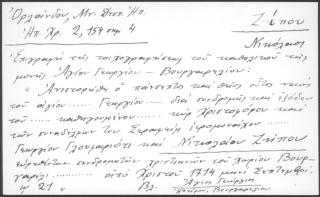 Ὀρλάνδου, Μν. Δεσπ. Ἠπ.
Ἠπ. Χρ. 2, 154 σημ 4
Ζήπου
Νικόλαος
Ἐπιγραφή τῆς τοιχογραφήσεως τοῦ καθολικοῦ τῆς
μονῆς Ἁγίου Γεωργίου - Βουργαρελίου:
" Ἀνιστορήθη ὁ πάνσεπτος καὶ θεῖος οὗτος ναός
τοῦ ἁγίου ..... Γεωργίου ..... διά συνδρομῆς καί ἐξόδου
τοῦ ..... καθηγουμένου ..... κὺρ Χριστοφόρου καί
τῶν συναδέλφων του Σεραφείμ ἱερομονάχου
Γεωργίου Γλουμαριότι καί Νικολάου Ζήπου
εὑρεθέντων συνδρομητῶν χριστιανῶν τοῦ χωρίου Βουρ-
γαρέλι ..... ἀπό Χριστοῦ 1714 μηνί Σεπτεμβρί-
ῳ 21 "
Βλ. Ἅγιος Γεώργιος
Βουργαρελίου